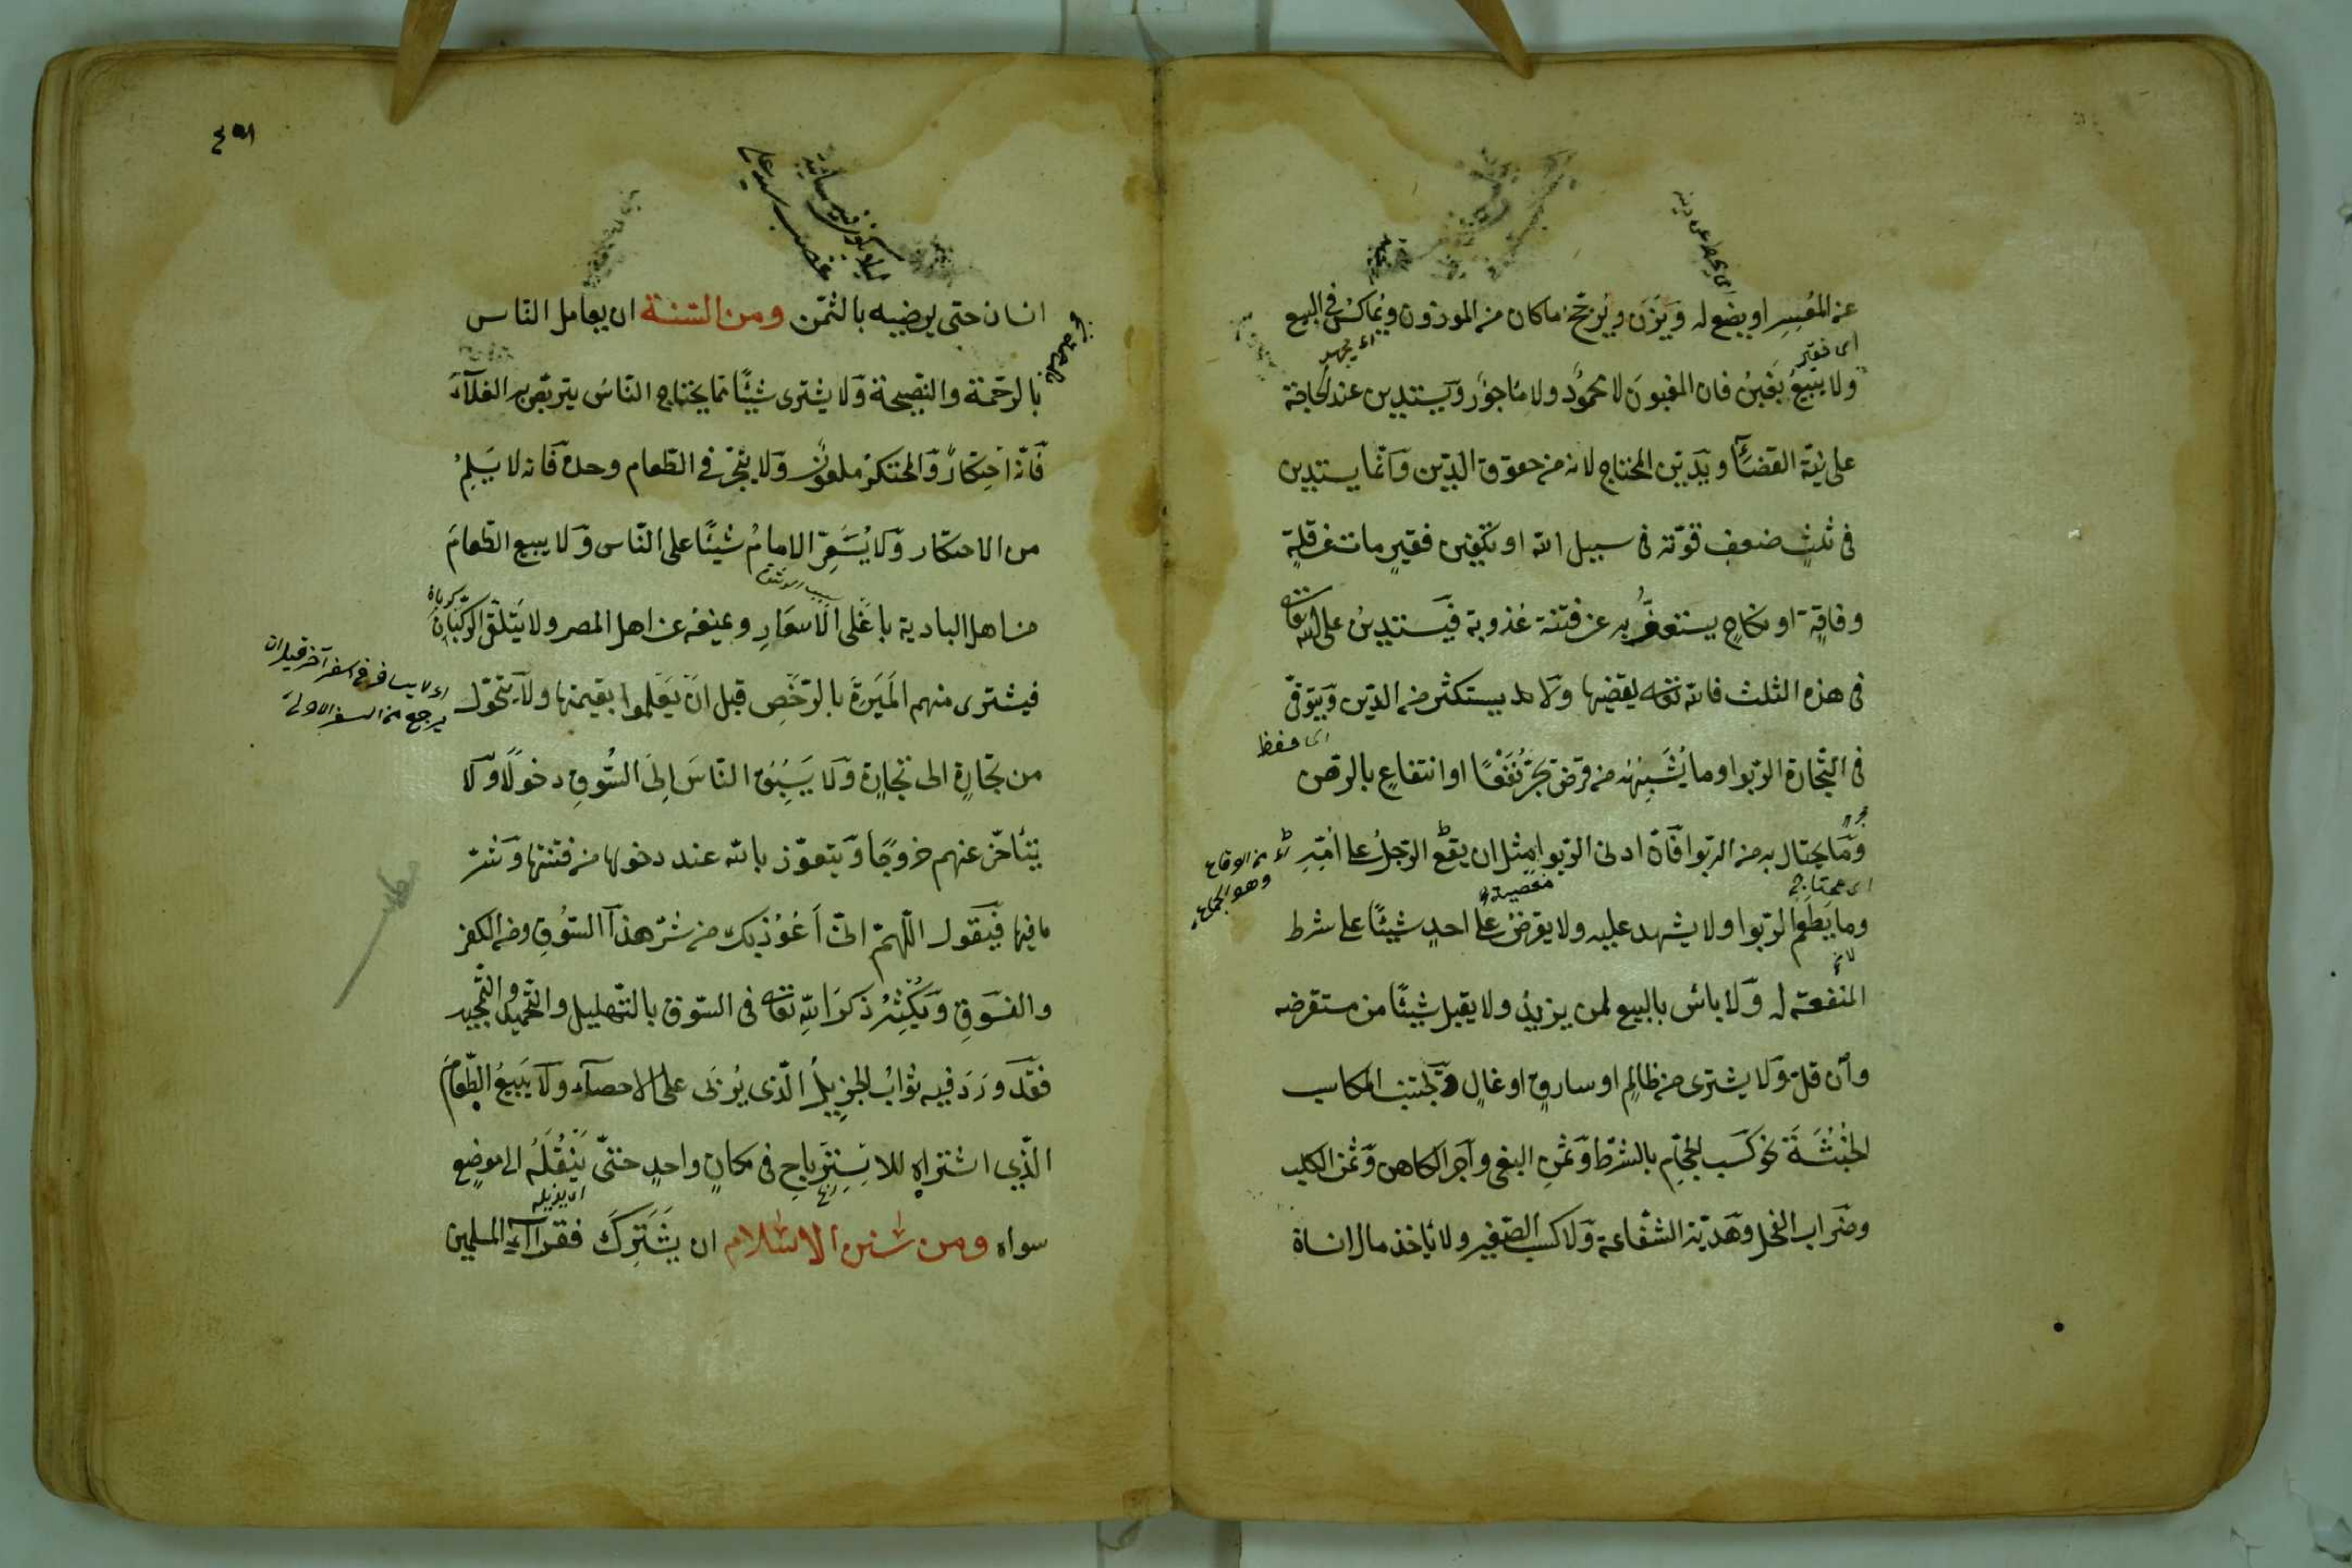 عن المُعْسِرِ او يضع له وَيَزِن ويُرجّح ما كان من الموزون ويُماكسُ فى البيع
اى فقير
ولا يبيعُ بغبنٍ فان المغبونَ لا محمُودٌ ولا مأجورٌ ويستدين عند الحاجة
على نيّة القضآء ويَديّن المحتاج لانه من حقوق الدّين وانّما يستدين
فى ثلثٍ ضعف قوّته فى سبيل الله او تكفين فقيرٍ مات عن قلّةٍ
وفاقةٍ او نكاحٍ يستعففُ به عن فتنة عُذوبة فيستدينُ على الله تعالى
فى هذه الثلث فان الله تعالى يقضيها ولا يستكثر من الدّين وَيتوقّى
اى حفظ
فى التّجارة الرّبوا وما يُشْبِهُه من قرضٍ يجرّ نَفْعًا او انتفاعٍ بالرهن
وَما يحتال به من الربوا فانّ ادنى الرّبوا مثل ان يقع الرّجلُ على امّه
اى من الوقاع
وهو الجماع
وما يَطعم الرّبوا ولا يشهد عليه ولا يقرضُ على احدٍ شيئًا على شرط
المنفعة له وَلا بأس بالبيع لمن يزيدُ ولا يقبل شيئًا من مستقرضه
وان قلّ وَلا يشترى من ظالمٍ او سارقٍ او غالٍ ويجتنب المكاسب
الخبثَةَ نحو كسب الحجّام بالشرط وَثمنِ البغى وأجر الكاهن وَثمن الكلب
وضَراب الفحل وهَديّة الشفاعة وَلا كسب الصّغير ولا يأخذ مال انسان
٤٥١
انسان حتى يرضيه بالثّمن ومن السّنة ان يعامل النّاس
بالرحمة والنّصيحة وَلا يشترى شيئًا ممّا يحتاج النّاسُ يتربّص به الغلآءَ
فَانّه احتكارٌ وَالمحتكرُ ملعونٌ وَلا يتّجر فى الطّعام وحده فَانه لا يَسلمُ
من الاحتكار وَلا يُسَعِّر الامامُ شيئًا على النّاس وَلا يبيع الطّعامَ
من اهل البادية باغلى الاسعارِ ويمنعُه عن اهل المصر ولا يَتلقّى الركبانَ
فيشترى منهم المِيرةَ بالرّخصِ قبل ان يَعْلموا بقيمتها ولا يتحوّل
اى لا يسافر فى سفر آخر قبل ان
يرجع من السفر الاولى
من تجارةٍ الى تجارةٍ وَلا يَسْبِقُ النّاسَ اِلَى السُّوقِ دخولًا وَلا
يتأخّر عنهم خروجًا وَيتعوّذ بالله عند دخولها من فتنتها وَشرّ
ما فيها فَيَقول اللّهمّ انّى اَعُوْذ بك من شرّ هذا السّوقِ ومن الكفر
والفسوقِ وَيُكْثِرُ ذكر اللهِ تعالى فى السّوق بالتّهليل والتّحميد والتّمجيد
فقَد وَرَدَ فيه ثوابُ الجزيلُ الّذى يُربى على الاحصآء وَلا يَبيعُ الطّعامَ
الّذى اشتراه للاسترباحِ فى مكانٍ واحدٍ حتّى يَنْقُلَهُ الى موضعٍ
سواه ومن سُنن الاسْلام ان يَشْتَرِكَ فقرآء المسلمين